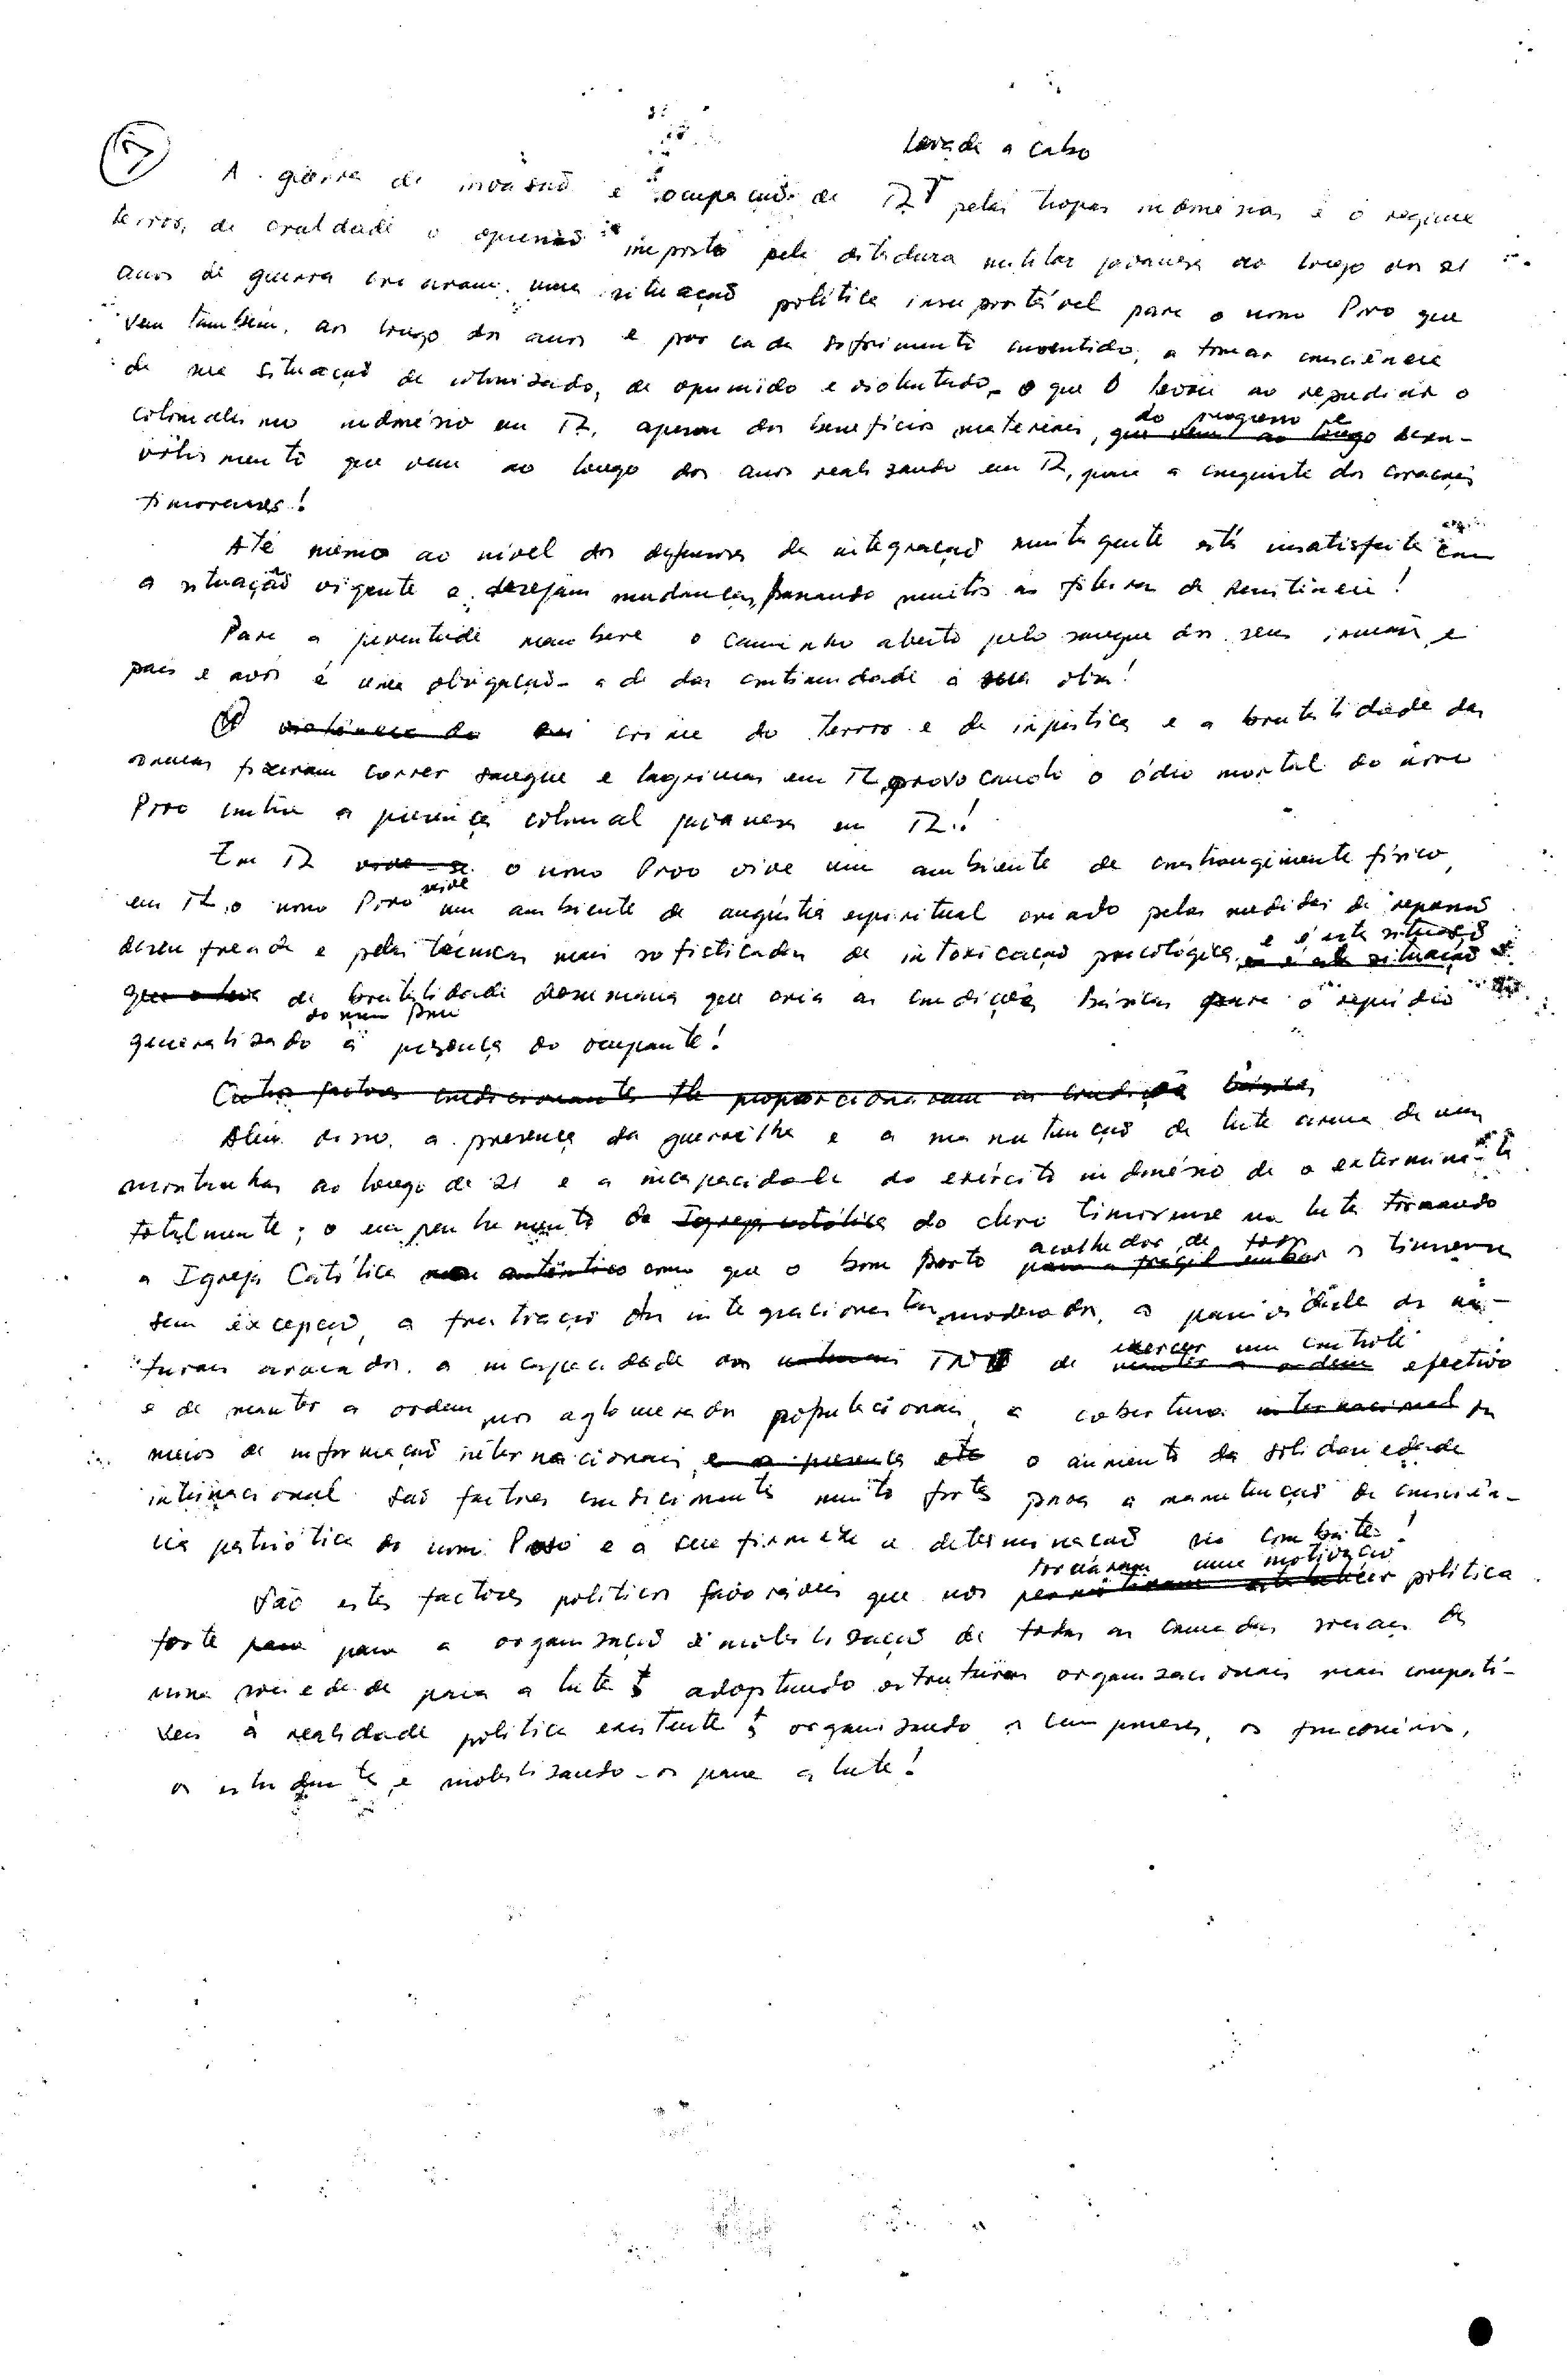 levada a cabo
A guerra de invasão e ocupação de TL pelas tropas indonésias e o regime
terror, de crueldade e opressão imposto pela ditadura militar javanesa ao longo dos 21
anos de guerra criaram uma situação política insuportável para o nosso Povo que
vem também, ao longo dos anos e por cada sofrimento consentido, a tomar consciência
da sua situação de colonizado, de oprimido e violentado, o que o levou ao repudiar o
colonialismo indonésio em TL, apesar dos benefícios materiais, do progresso e desen-
volvimento que vem ao longo dos anos realizando em TL, para a conquista dos corações
timorenses!
Até mesmo ao nível dos defensores da integração muita gente está insatisfeita com
a situação vigente e desejam mudanças, passando muitos às fileiras da Resistência!
Para a juventude maubere o caminho aberto pelo sangue dos seus irmãos, e
pais e avós é uma obrigação - a de dar continuidade à sua obra!
O crime do terror e da injustiça e a brutalidade das
armas fizeram correr sangue e lágrimas em TL, provocando o ódio mortal do nosso
Povo contra a presença colonial javanesa em TL!
Em TL o nosso Povo vive um ambiente de constrangimento físico,
em TL o nosso Povo vive um ambiente de angústia espiritual criado pelas medidas de repressão
desenfreada e pelas técnicas mais sofisticadas de intoxicação psicológica, e é esta situação
de brutalidade desumana que cria as condições básicas para o repúdio
generalizado do nosso Povo à presença do ocupante!
Além disso, a presença da guerrilha e a manutenção da luta armada nas
montanhas ao longo de 21 e a incapacidade do exército indonésio de a exterminar
totalmente; o empenhamento do clero timorense na luta tornando
a Igreja Católica como que o bom porto acolhedor de todos os timorenses
sem excepção, a frustração dos integracionistas moderados, a
a incapacidade das de exercer um controle efectivo
e de manter a ordem nos aglomerados populacionais, a cobertura dos
meios de informação internacionais, o aumento da solidariedade
internacional são factores condicionantes muito fortes para a manutenção da consciên-
cia patriótica do nosso Povo e a sua firmeza e determinação no combate!
São estes factores políticos favoráveis que nos tornaram uma motivação política
forte para a organização e mobilização de todas as camadas sociais da
nossa sociedade para a luta adoptando estruturas organizacionais mais compatí-
veis à realidade política existente organizando os camponeses, os funcionários,
os estudantes, e mobilizando-os para a luta!